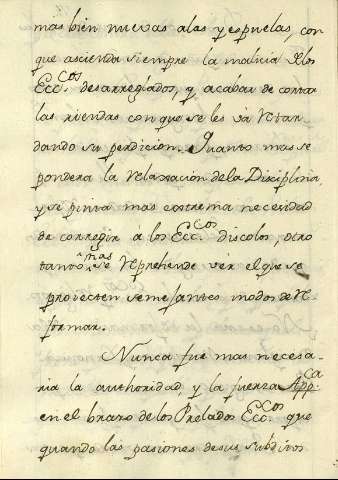 mas bien nuevas alas y espuelas, con
que ascienda siempre la malicia de los
Ecc.cos desarreglados, y acaban de cortar
las riendas con que se les va retar
dando su perdicion. Quanto mas se
pondera la relaxacion de la Disciplina
y se pinta mas extrema necesidad
de corregir a los Ecc.cos discolos, otro
tanto mas se reprehende ver el que se
proyecten semejantes modos de re
formar.
Nunca fue mas necesa-
ria la authoridad, y la fuerza App.ca
en el brazo de los Prelados Ecc.cos que
quando las pasiones de sus subditos